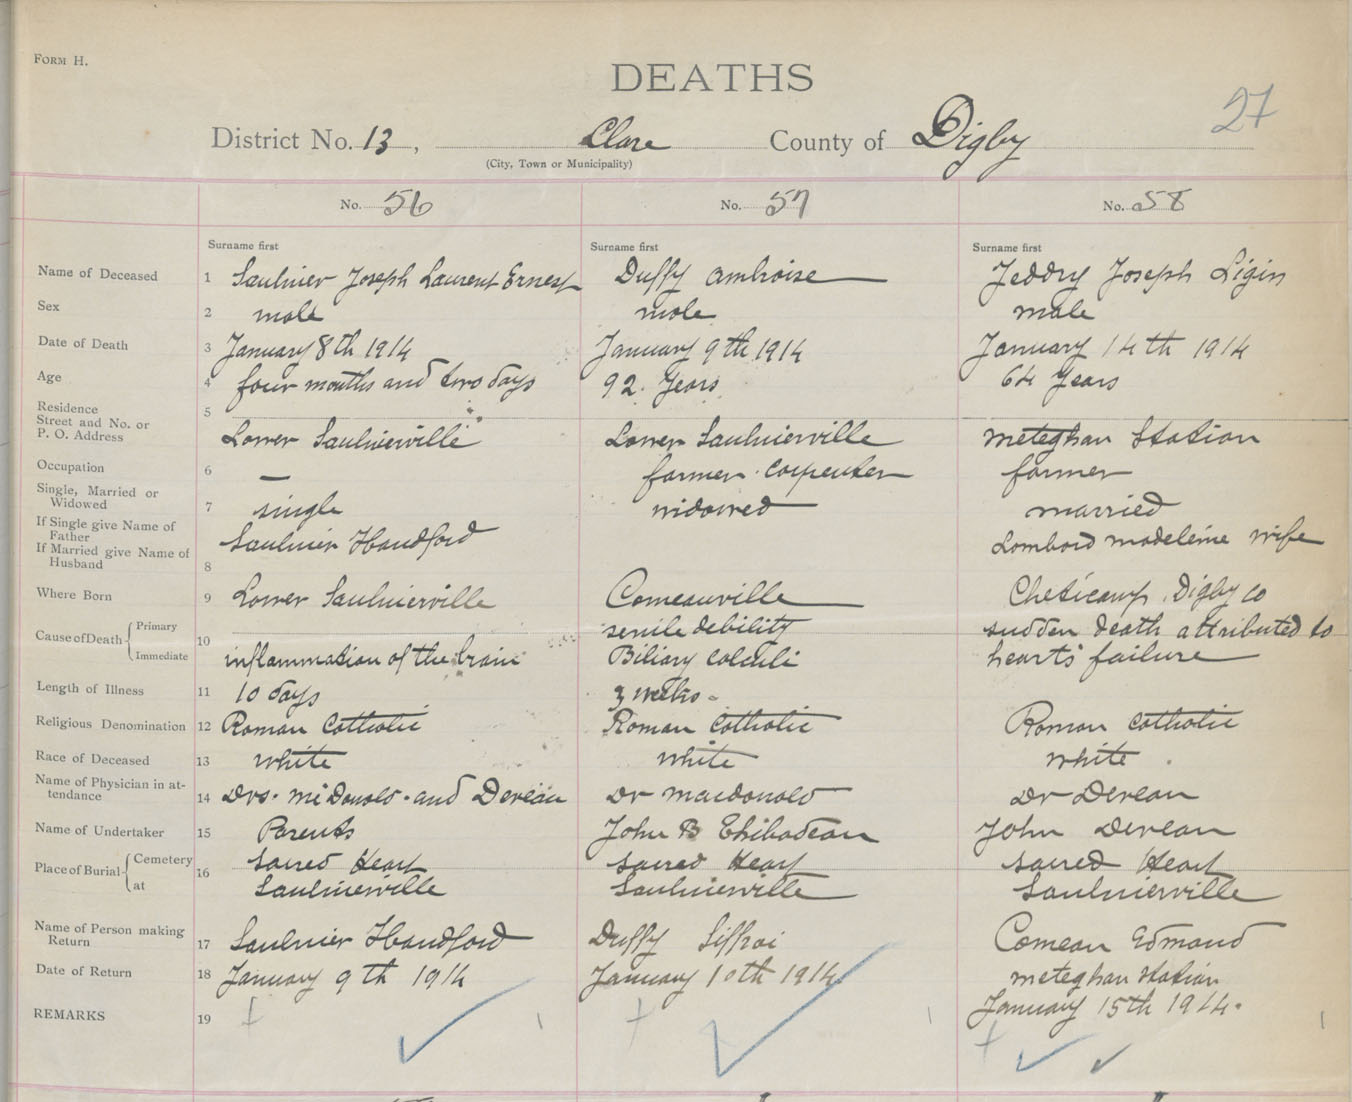 FORM H.
DEATHS
27
District No. 13, Clare County of Digby
(City, Town or Municipality)
No. 56 No. 57 No. 58
Surname first Surname first Surname first
Name of Deceased 1 Saulnier Joseph Laurent Ernest Duffy ambroise Jeddry Joseph Ligin
Sex 2 male male male
Date of Death 3 January 8th 1914 January 9th 1914 January 14th 1914
Age 4 four months and two days 92 Years 64 Years
Residence
Street and No. or
P. O. Address 5 Lower Saulnierville Lower Saulnierville meteghan Station
Occupation 6 — farmer. carpenter farmer
Single, Married or
Widowed 7 single widowed married
If Single give Name of
Father
If Married give Name of
Husband 8 Saulnier Handford Lombard madeleine wife
Where Born 9 Lower Saulnierville Comeauville Cheticamp, Digby co
Cause of Death Primary 10 senile debility sudden death attributed to
Immediate inflammation of the brain Biliary calculi hearts failure
Length of Illness 11 10 days 3 weeks
Religious Denomination 12 Roman Catholic Roman Catholic Roman Catholic
Race of Deceased 13 white white white
Name of Physician in at-
tendance 14 Drs. McDonald. and Deveau Dr macdonald Dr Deveau
Name of Undertaker 15 Parents John B Thibodeau John Deveau
Place of Burial Cemetery 16 sacred Heart sacred Heart sacred Heart
at Saulnierville Saulnierville Saulnierville
Name of Person making
Return 17 Saulnier Handford Duffy Siffroi Comeau Edmond
Date of Return 18 January 9th 1914 January 10th 1914 meteghan station
January 15th 1914.
REMARKS 19